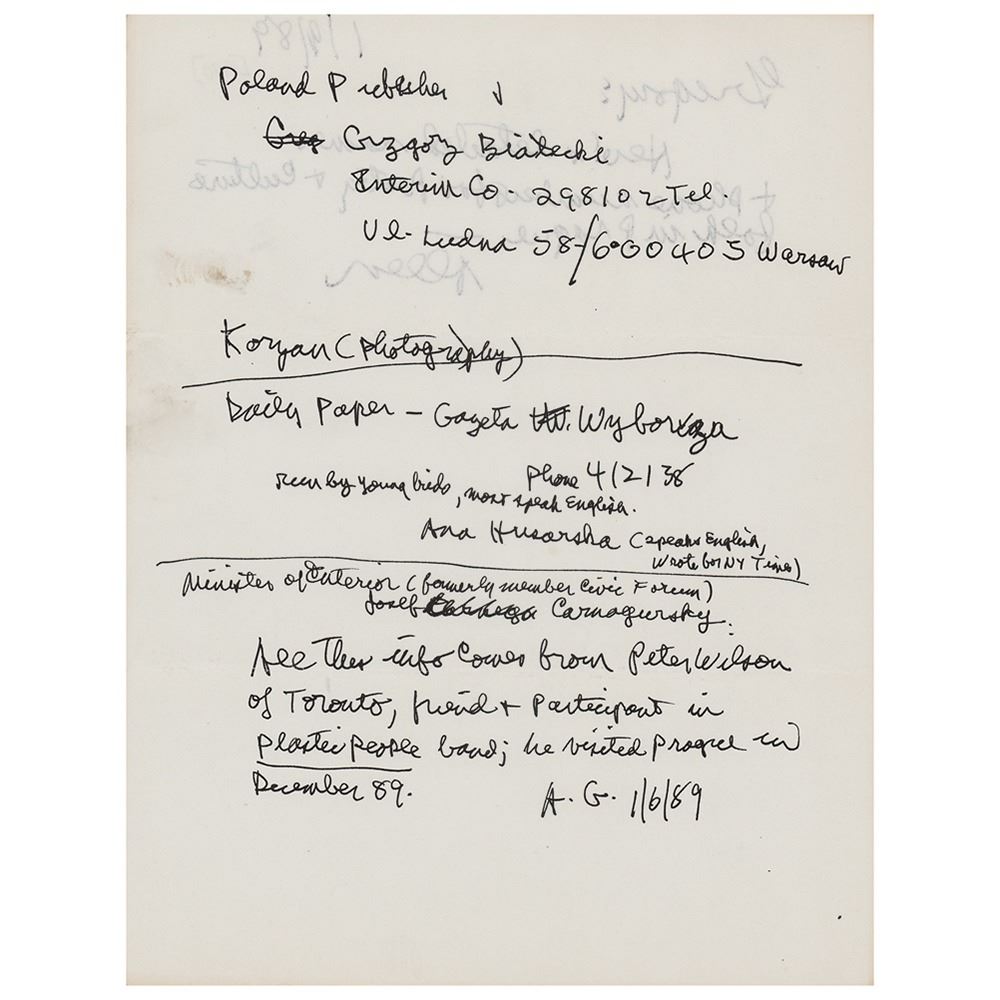 Poland Publisher ↓
Greg Grzgorz Bialecki
Interim Co. 298102 Tel.
Ul. Ludna 58/6 00405 Warsaw
Koryan (Photography)
Daily Paper – Gazeta W. Wyborcza
Phone 412138
run by young birds, most speak English.
Ana Husarska (speaks English,
Wrote for NY Times)
Minister of Interior (formerly member Civic Forum)
Josef Carnogursky.
All this info comes from Peter Wilson
of Toronto, friend + participant in
Plastic People band; he visited Prague in
December 89.
A. G. 1/6/89